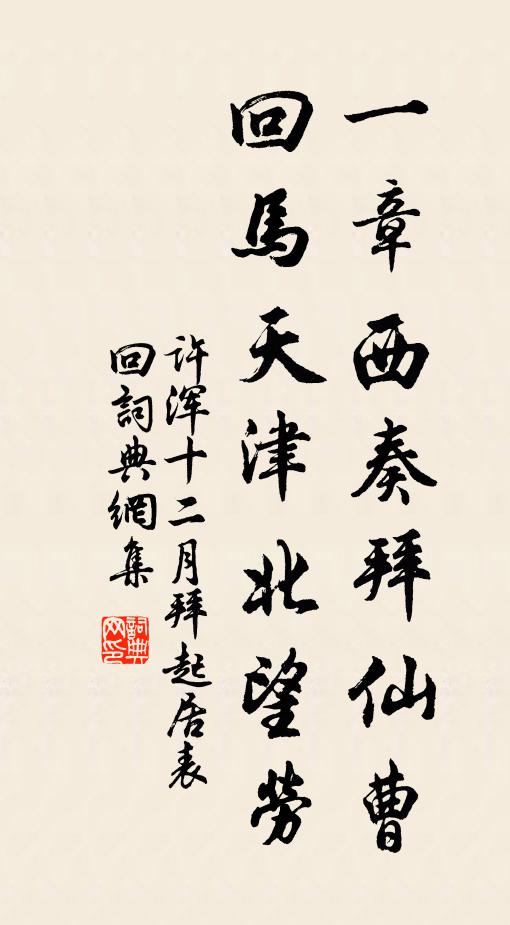 一章西奏拜仙曹
回馬天津北望勞
许浑十二月拜起居表
回詞典網集
詞典网印